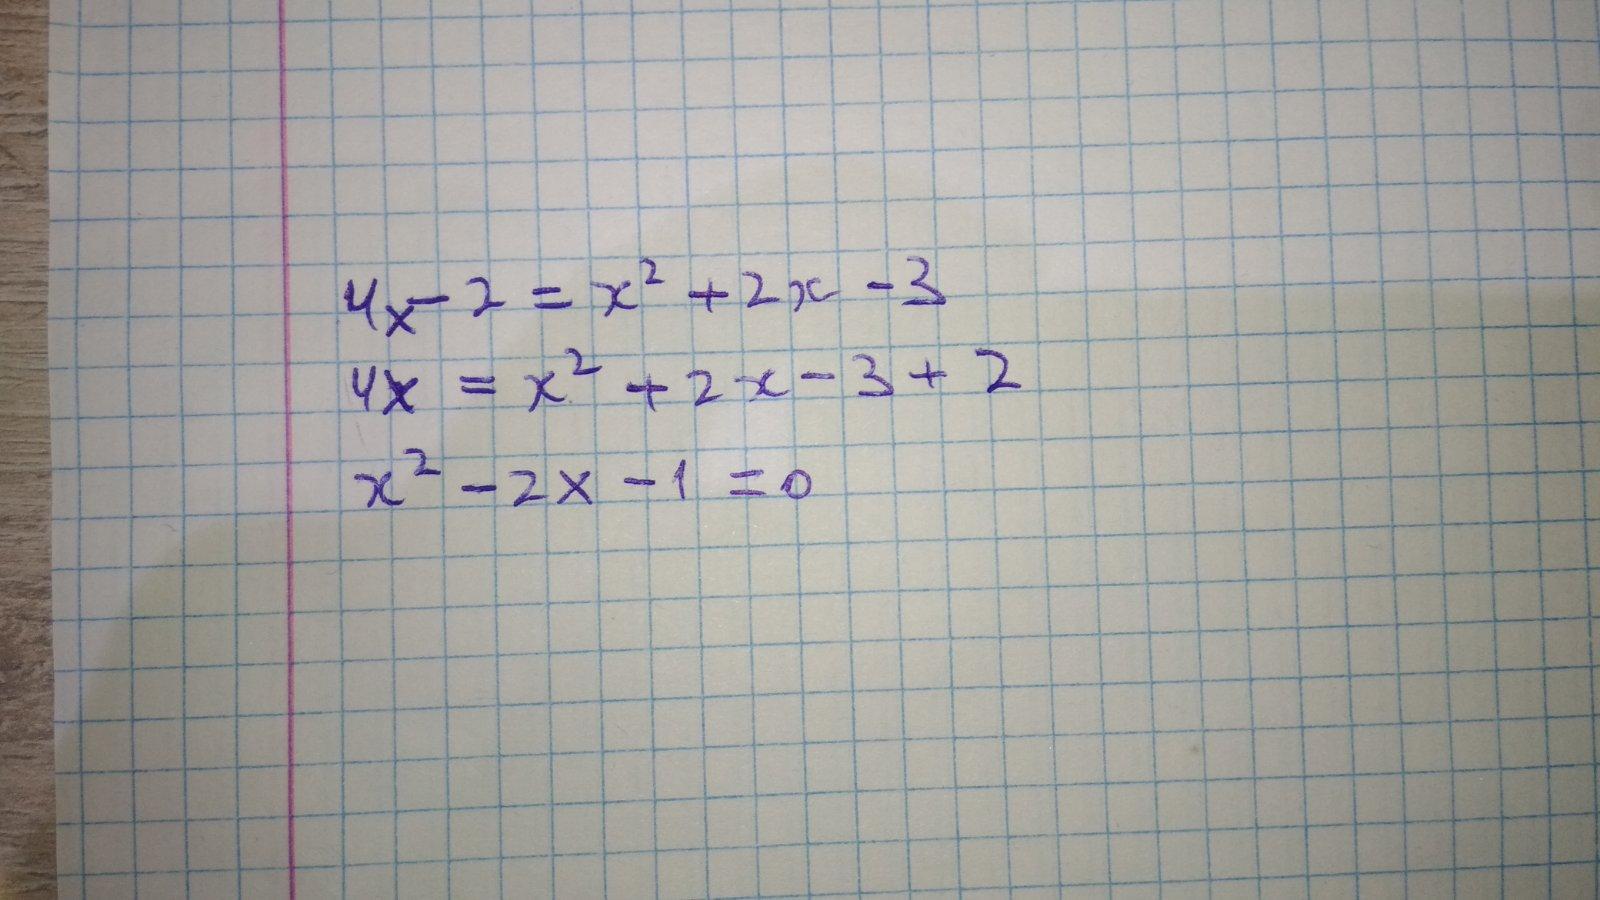 4x - 2 = x² + 2x - 3
4x = x² + 2x - 3 + 2
x² - 2x - 1 = 0